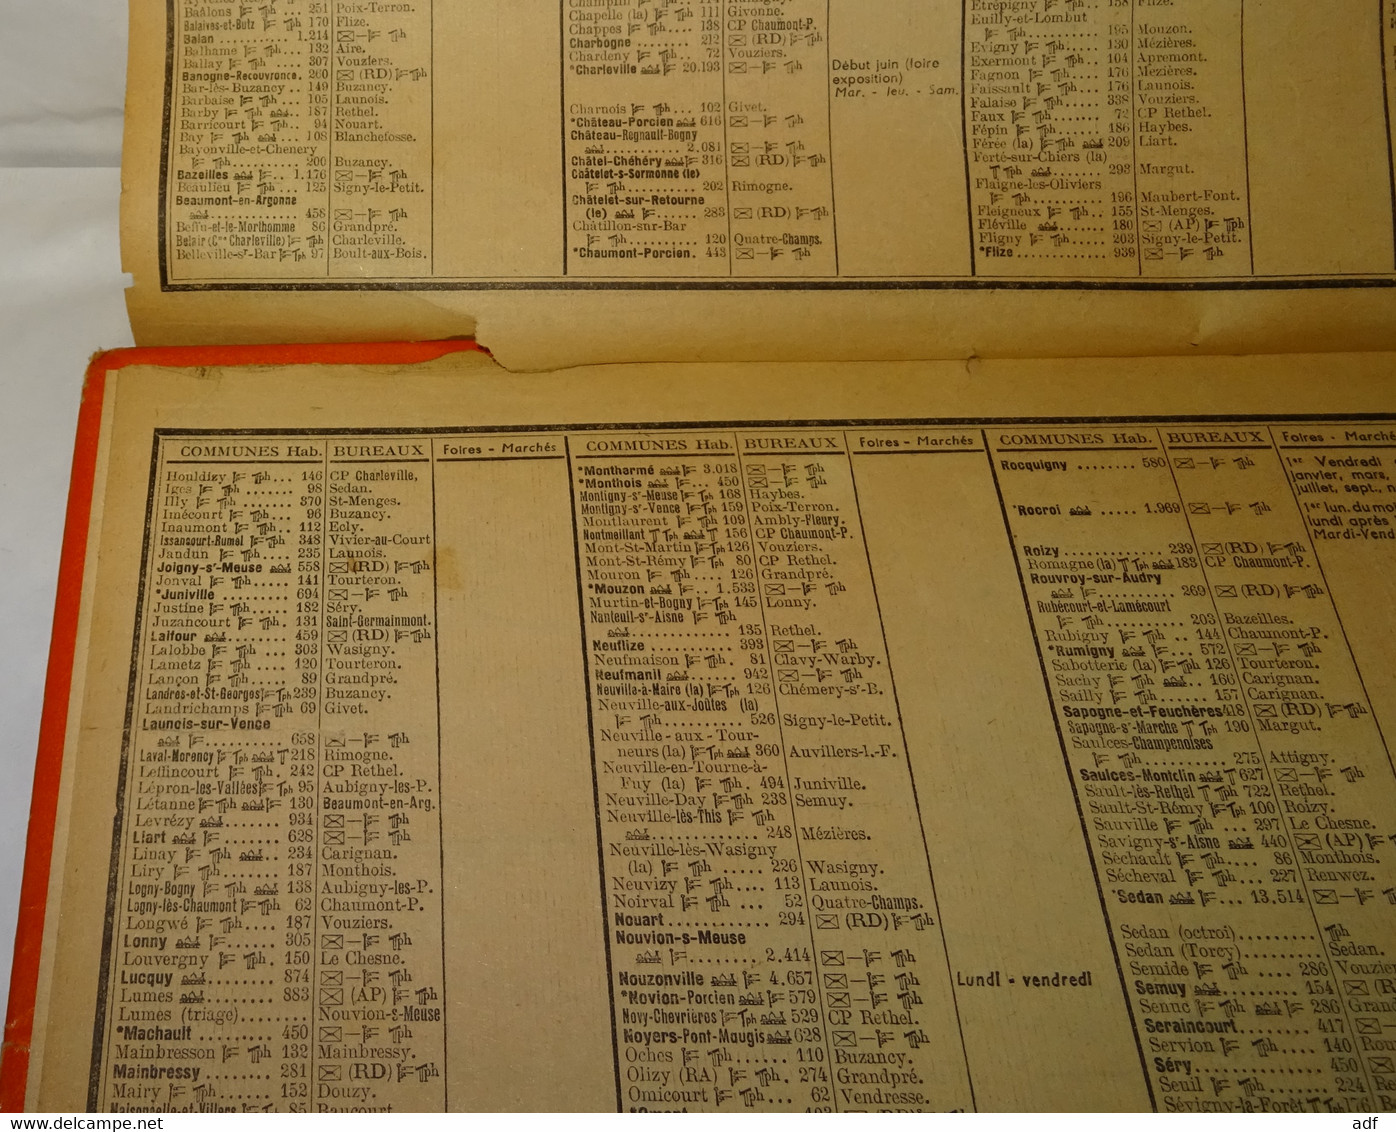 Baâlons 251 Poix-Terron.
Balaives-et-Butz 170 Flize.
Balan 1.214
Balhame 132 Aire.
Ballay 307 Vouziers.
Banogne-Recouvrance. 260 (RD)
Bar-lès-Buzancy 149 Buzancy.
Barbaise 105 Launois.
Barby 187 Rethel.
Barricourt 94 Nouart.
Bay 108 Blanchefosse.
Bayonville-et-Chenery
200 Buzancy.
Bazeilles 1.176
Beaulieu 125 Signy-le-Petit.
Beaumont-en-Argonne
458
Beffu-et-le Morthomme 86 Grandpré.
Belair (Cne Charleville) Charleville.
Belleville-sr-Bar 97 Boult-aux-Bois.
Chapelle (la) 111 Givonne.
Chappes 138 CP Chaumont-P.
Charbogne 212 (RD)
Chardeny 72 Vouziers.
*Charleville 20.193
Début juin (foire
exposition)
Mar. - Jeu. - Sam.
Charnois 102 Givet.
*Château-Porcien 616
Château-Regnault-Bogny
2.081
Châtel-Chéhéry 316 (RD)
Châtelet-s-Sormonne (le)
202 Rimogne.
Châtelet-sur-Retourne
(le) 283 (RD)
Châtillon-sur-Bar
120 Quatre-Champs.
*Chaumont-Porcien. 443
Etrépigny 158 Flize.
Euilly-et-Lombut
195 Mouzon.
Evigny 130 Mézières.
Exermont 104 Apremont.
Fagnon 176 Mézières.
Faissault 176 Launois.
Falaise 338 Vouziers.
Faux 72 CP Rethel.
Fépin 186 Haybes.
Férée (la) 209 Liart.
Ferté-sur-Chiers (la)
293 Margut.
Flaigne-les-Oliviers
196 Maubert-Font.
Fleigneux 155 St-Menges.
Fléville 180 (AP)
Fligny 203 Signy-le-Petit.
*Flize 939
COMMUNES Hab. BUREAUX Foires - Marchés
Houldizy 146 CP Charleville,
Iges 98 Sedan.
Illy 370 St-Menges.
Imécourt 96 Buzancy.
Inaumont 112 Ecly.
Issancourt-Rumel 348 Vivier-au-Court
Jandun 235 Launois.
Joigny-sr-Meuse 558 (RD)
Jonval 141 Tourteron.
*Juniville 694
Justine 182 Séry.
Juzancourt 131 Saint-Germainmont.
Laifour 459 (RD)
Lalobbe 303 Wasigny.
Lametz 120 Tourteron.
Lançon 89 Grandpré.
Landres-et-St-Georges 239 Buzancy.
Landrichamps 69 Givet.
Launois-sur-Vence
658
Laval-Morency 218 Rimogne.
Leffincourt 242 CP Rethel.
Lépron-les-Vallées 95 Aubigny-les-P.
Létanne 130 Beaumont-en-Arg.
Levrézy 934
Liart 628
Linay 234 Carignan.
Liry 187 Monthois.
Logny-Bogny 138 Aubigny-les-P.
Logny-lès-Chaumont 62 Chaumont-P.
Longwé 187 Vouziers.
Lonny 305
Louvergny 150 Le Chesne.
Lucquy 874
Lumes 883 (AP)
Lumes (triage) Nouvion-s-Meuse
*Machault 450
Mainbresson 132 Mainbressy.
Mainbressy 281 (RD)
Mairy 152 Douzy.
Maisoncelle-et-Villers 85 Raucourt
COMMUNES Hab. BUREAUX Foires - Marchés
*Monthermé 3.018
*Monthois 450
Montigny-sr-Meuse 168 Haybes.
Montigny-sr-Vence 159 Poix-Terron.
Montlaurent 109 Ambly-Fleury.
Montmeillant 156 CP Chaumont-P.
Mont-St-Martin 126 Vouziers.
Mont-St-Rémy 80 CP Rethel.
Mouron 126 Grandpré.
*Mouzon 1.533
Murtin-et-Bogny 145 Lonny.
Nanteuil-sr-Aisne
135 Rethel.
Neuflize 393
Neufmaison 81 Clavy-Warby.
Neufmanil 942
Neuville-à-Maire (la) 126 Chémery-sr-B.
Neuville-aux-Joûtes (la)
526 Signy-le-Petit.
Neuville - aux - Tour-
neurs (la) 360 Auvillers-l.-F.
Neuville-en-Tourne-à-
Fuy (la) 494 Juniville.
Neuville-Day 238 Semuy.
Neuville-lès-This
248 Mézières.
Neuville-lès-Wasigny
(la) 226 Wasigny.
Neuvizy 113 Launois.
Noirval 52 Quatre-Champs.
Nouart 294 (RD)
Nouvion-s-Meuse
2.414
Nouzonville 4.657 Lundi - vendredi
*Novion-Porcien 579
Novy-Chevrières 529 CP Rethel.
Noyers-Pont-Maugis 628
Oches 110 Buzancy.
Olizy (RA) 274 Grandpré.
Omicourt 62 Vendresse.
*Omont
COMMUNES Hab. BUREAUX Foires - Marchés
Rocquigny 580
1er Vendredi
janvier, mars,
juillet, sept.,
*Rocroi 1.969
1er lun. du moi
lundi après
Mardi-Vend
Roizy 239 (RD)
Romagne (la) 183 CP Chaumont-P.
Rouvroy-sur-Audry
269 (RD)
Rubécourt-et-Lamécourt
203 Bazeilles.
Rubigny 144 Chaumont-P.
*Rumigny 572
Sabotterie (la) 126 Tourteron.
Sachy 166 Carignan.
Sailly 157 Carignan.
Sapogne-et-Feuchères 418 (RD)
Sapogne-sr-Marche 190 Margut.
Saulces-Champenoises
275 Attigny.
Saulces-Montclin 627
Sault-lès-Rethel 722 Rethel.
Sault-St-Rémy 100 Roizy.
Sauville 297 Le Chesne.
Savigny-sr-Aisne 440 (AP)
Séchault 86 Monthois.
Sécheval 227 Renwez.
*Sedan 13.514
Sedan (octroi)
Sedan (Torcy) Sedan.
Semide 286 Vouzie
Semuy 154 (R
Senuc 286 Grand
Seraincourt 417
Servion 140 Rou
Séry 450
Seuil 224 Re
Sévigny-la-Forêt 176
adf